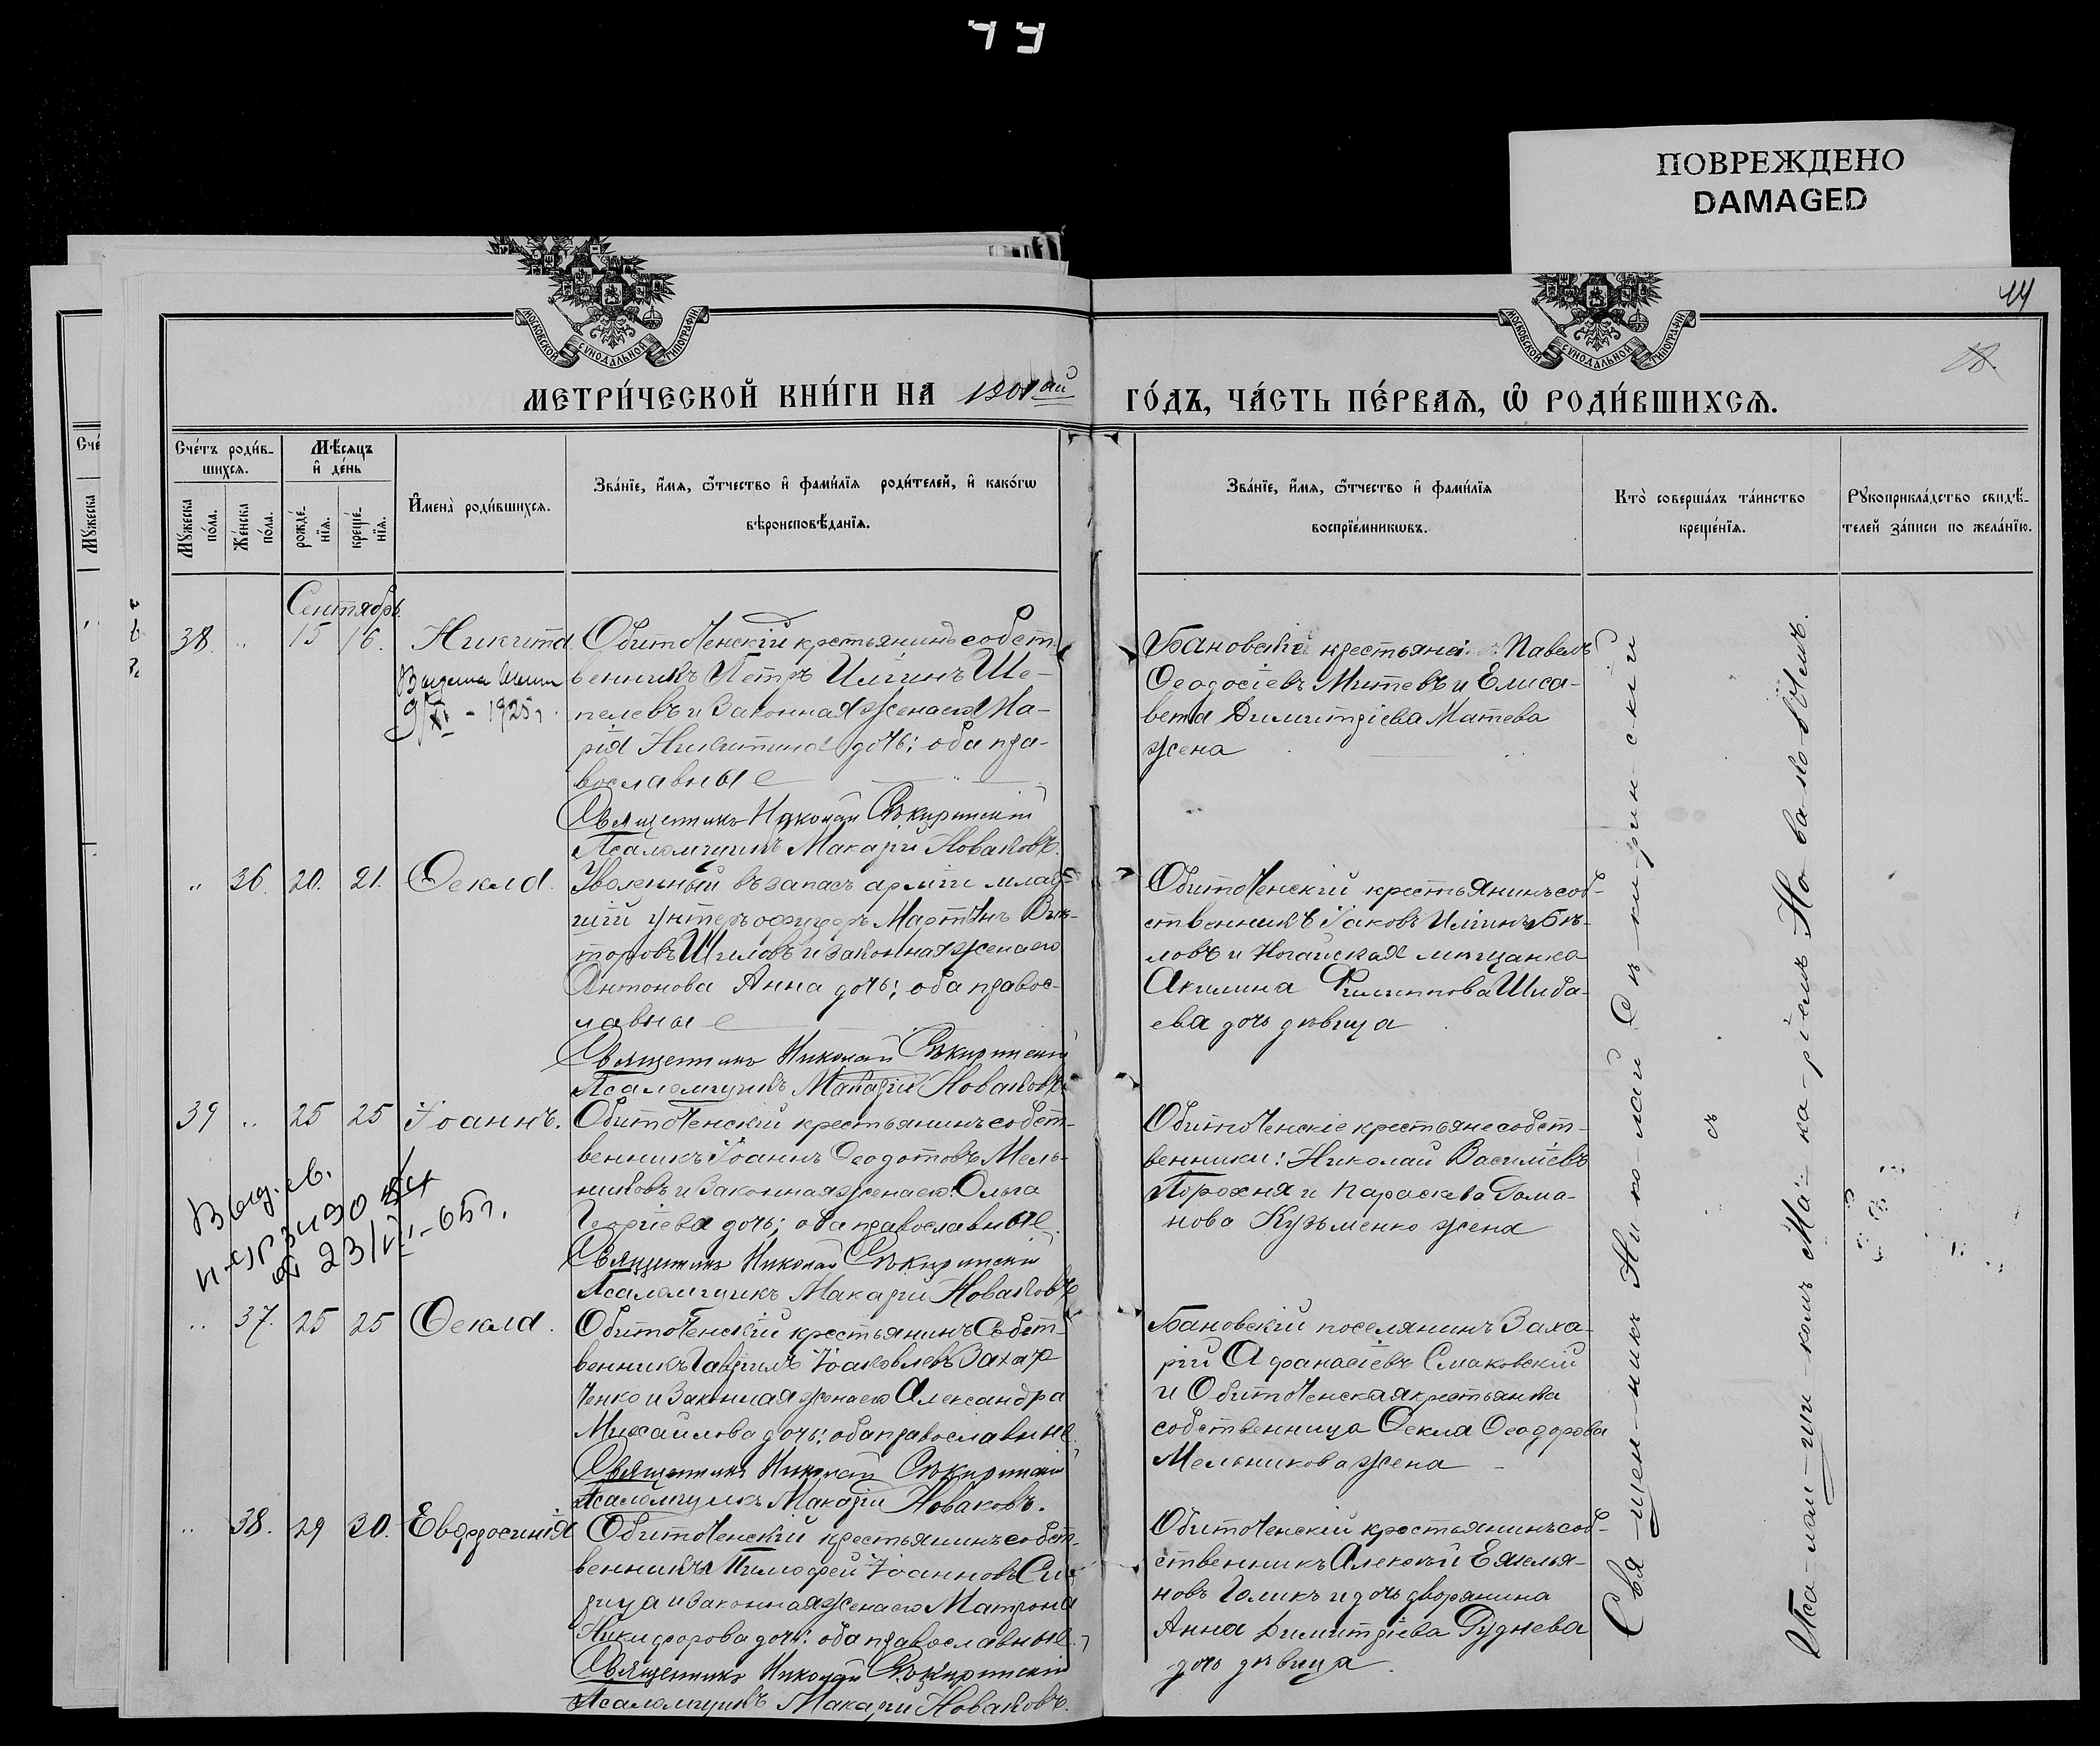 ПОВРЕЖДЕНО
DAMAGED
44
МОСКОВСКОЙ СѴНОДАЛЬНОЙ ТИПОГРАФІИ
МОСКОВСКОЙ СѴНОДАЛЬНОЙ ТИПОГРАФІИ
МЕТРИ́ЧЕСКОЙ КНИ́ГИ НА 1901ый ГО́ДЪ, ЧА́СТЬ ПЕ́РВАѦ, Ѡ҆ РОДИ́ВШИХСѦ.
Сче́тъ роди́в-
шихсѧ.
Мѣ́сѧцъ
и҆ де́нь
Мꙋ́жеска по́ла.
Же́нска по́ла.
рожде́-нїѧ.
креще́-нїѧ.
И҆мена̀ роди́вшихсѧ.
Зва́нїе, и҆́мѧ, ѻ҆́тчество и҆ фами́лїѧ роди́телей, и҆ како́гѡ
вѣроисповѣ́данїѧ.
Зва́нїе, и҆́мѧ, ѻ҆́тчество и҆ фами́лїѧ
воспрїе́мникѡвъ.
Кто̀ соверша́лъ та́инство
креще́нїѧ.
Рꙋкоприкла́дство свидѣ́-
телей за́писи по жела́нїю.
Сентябрь
38. " 15 16. Никита
Обиточенскій крестьянинъ собст-
венникъ Петръ Илiинъ Ше-
пелевъ и законная жена его Ма-
рія Никитина дочь; оба пра-
вославные
Священникъ Николай Сѣкиринскій
Псаломщикъ Макарій Новаковъ.
Бановскій крестьянинъ Павелъ
Ѳеодосіевъ Митевъ и Елиса-
вета Димитріева Матева
жена
XI - 1925 г.
" 36. 20. 21. Ѳекла.
Уволенный въ запасъ арміи млад-
шій унтеръ офицеръ Мартинъ Вик-
торовъ Шиловъ и законная жена его
Антонова Анна дочь; оба правос-
лавные
Священникъ Николай Сѣкиринскій
Псаломщикъ Макарій Новаковъ
Обиточенскій крестьянинъ соб-
ственникъ Іаковъ Илiинъ Бѣ-
ловъ и Ногайская мѣщанка
Акилина Филиппова Шиба-
ева дочь дѣвица
39 " 25 25 Іоаннъ.
Обиточенскій крестьянинъ собст-
венникъ Іоаннъ Ѳеодотовъ Мель-
никовъ и законная жена его Ольга
Георгіева дочь; оба православные.
Священникъ Николай Сѣкиринскій
Псаломщикъ Макарій Новаковъ
Обиточенскіе крестьяне собст-
венники: Николай Василіевъ
Порохня и Параскева Дома-
нова Кузьменко жена
Выд. св.
от 23/VI-65 г.
" 37. 25 25 Ѳекла.
Обиточенскій крестьянинъ собст-
венникъ Гавріилъ Іаковлевъ Захар
ченко и законная жена его Александра
Михайлова дочь: оба православные.
Священникъ Николай Сѣкиринскій
Псаломщикъ Макарій Новаковъ.
Бановскій поселянинъ Заха-
рій Аѳанасіевъ Смаковскій
и Обиточенская крестьянка
собственница Ѳекла Ѳеодорова
Мельникова жена
" 38. 29 30. Евфросинія
Обиточенскій крестьянинъ собст-
венникъ Тимофей Іоанновъ
и законная жена его Матрона
Никифорова дочь: оба православные.
Священникъ Николай Сѣкиринскій
Псаломщикъ Макарій Новаковъ.
Обиточенскій крестьянинъ соб-
ственникъ Алексѣй Емелья-
новъ Голикъ и дочь дворянина
Анна Димитріева Руднева
дочь дѣвица
Свя-щен-никъ Ни-ко-лай Сѣ-ки-рин-скій
съ
Пса-лом-щи-комъ Ма-ка-ріемъ Но-ва-ко-вымъ.